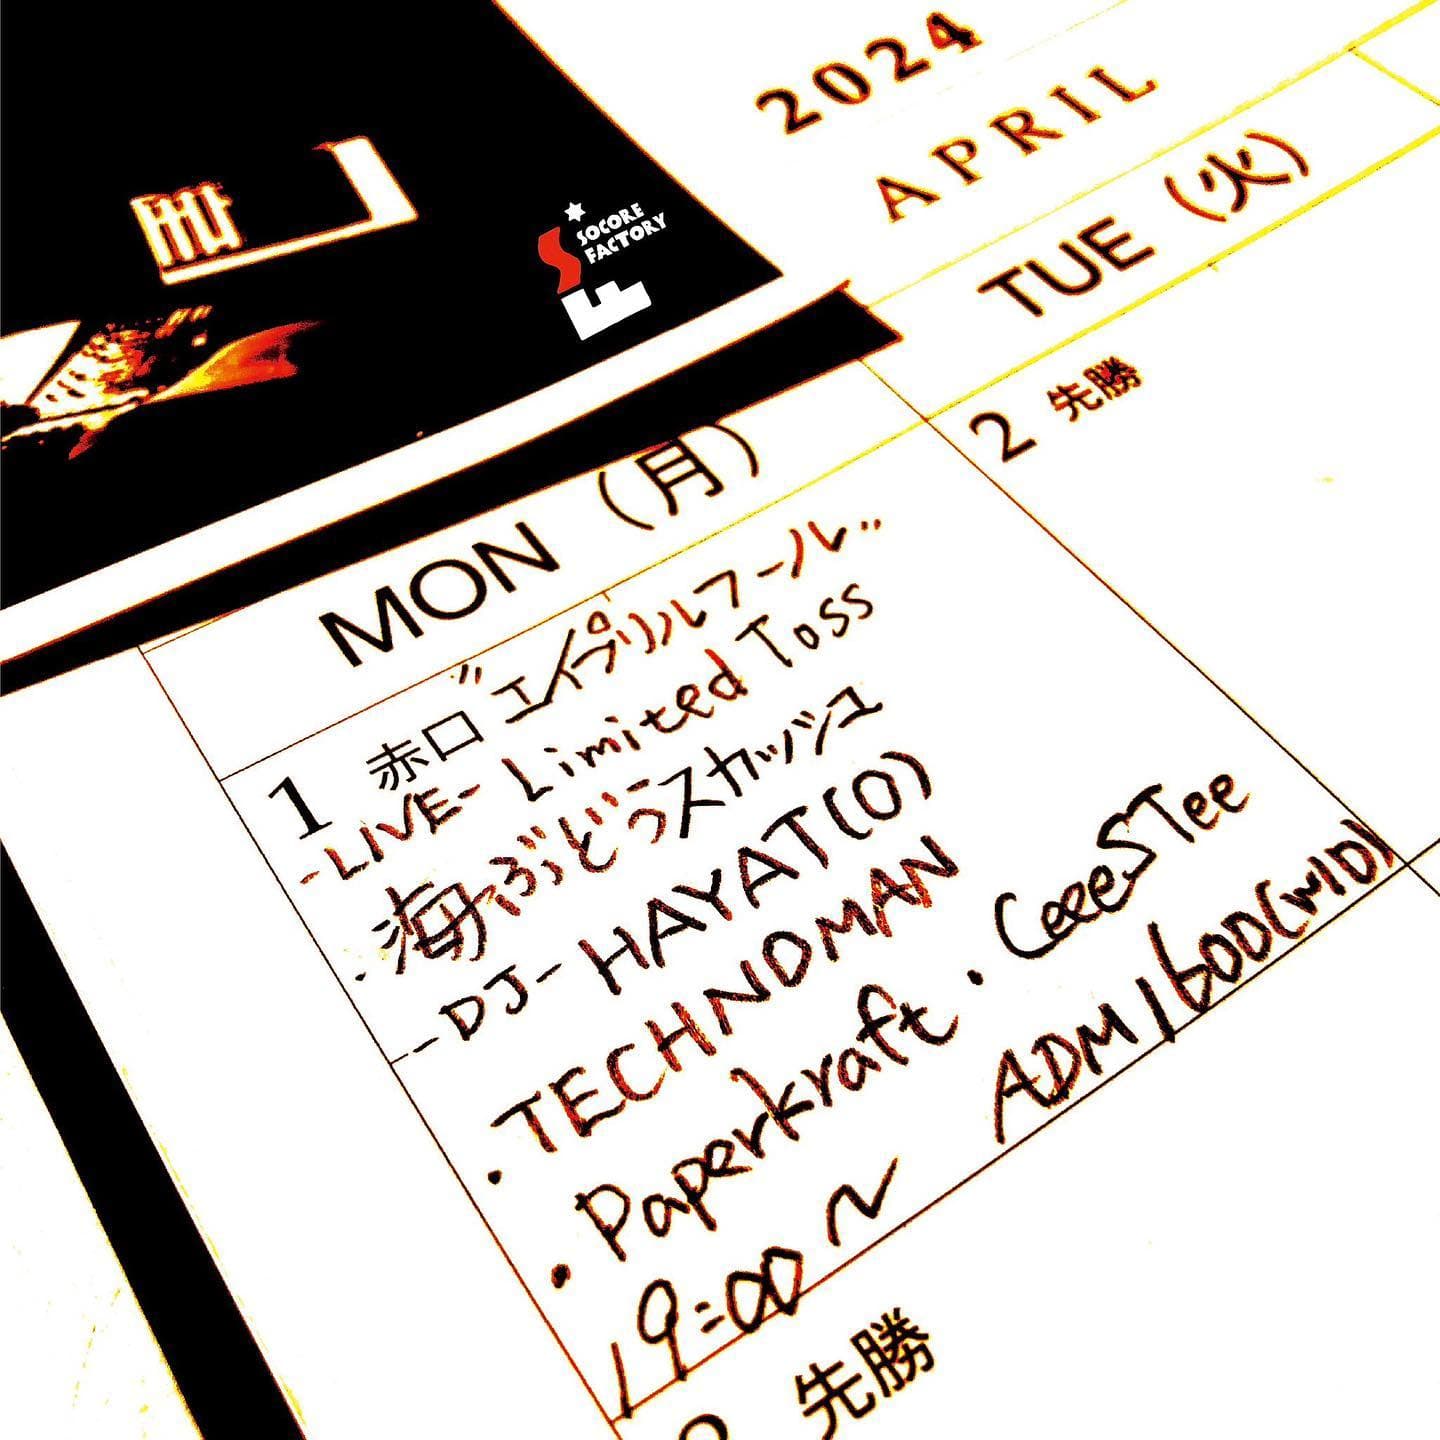 2024
APRIL
SOCORE
FACTORY
TUE (火)
MON (月)
2 先勝
1 赤口 "エイプリルフール"
-LIVE- Limited Toss
・海ぶどうスカッシュ
-DJ- HAYAT(O)
・TECHNOMAN
・Paperkraft ・CeeeSTee
19:00〜 ADM1600(W1D)
先勝